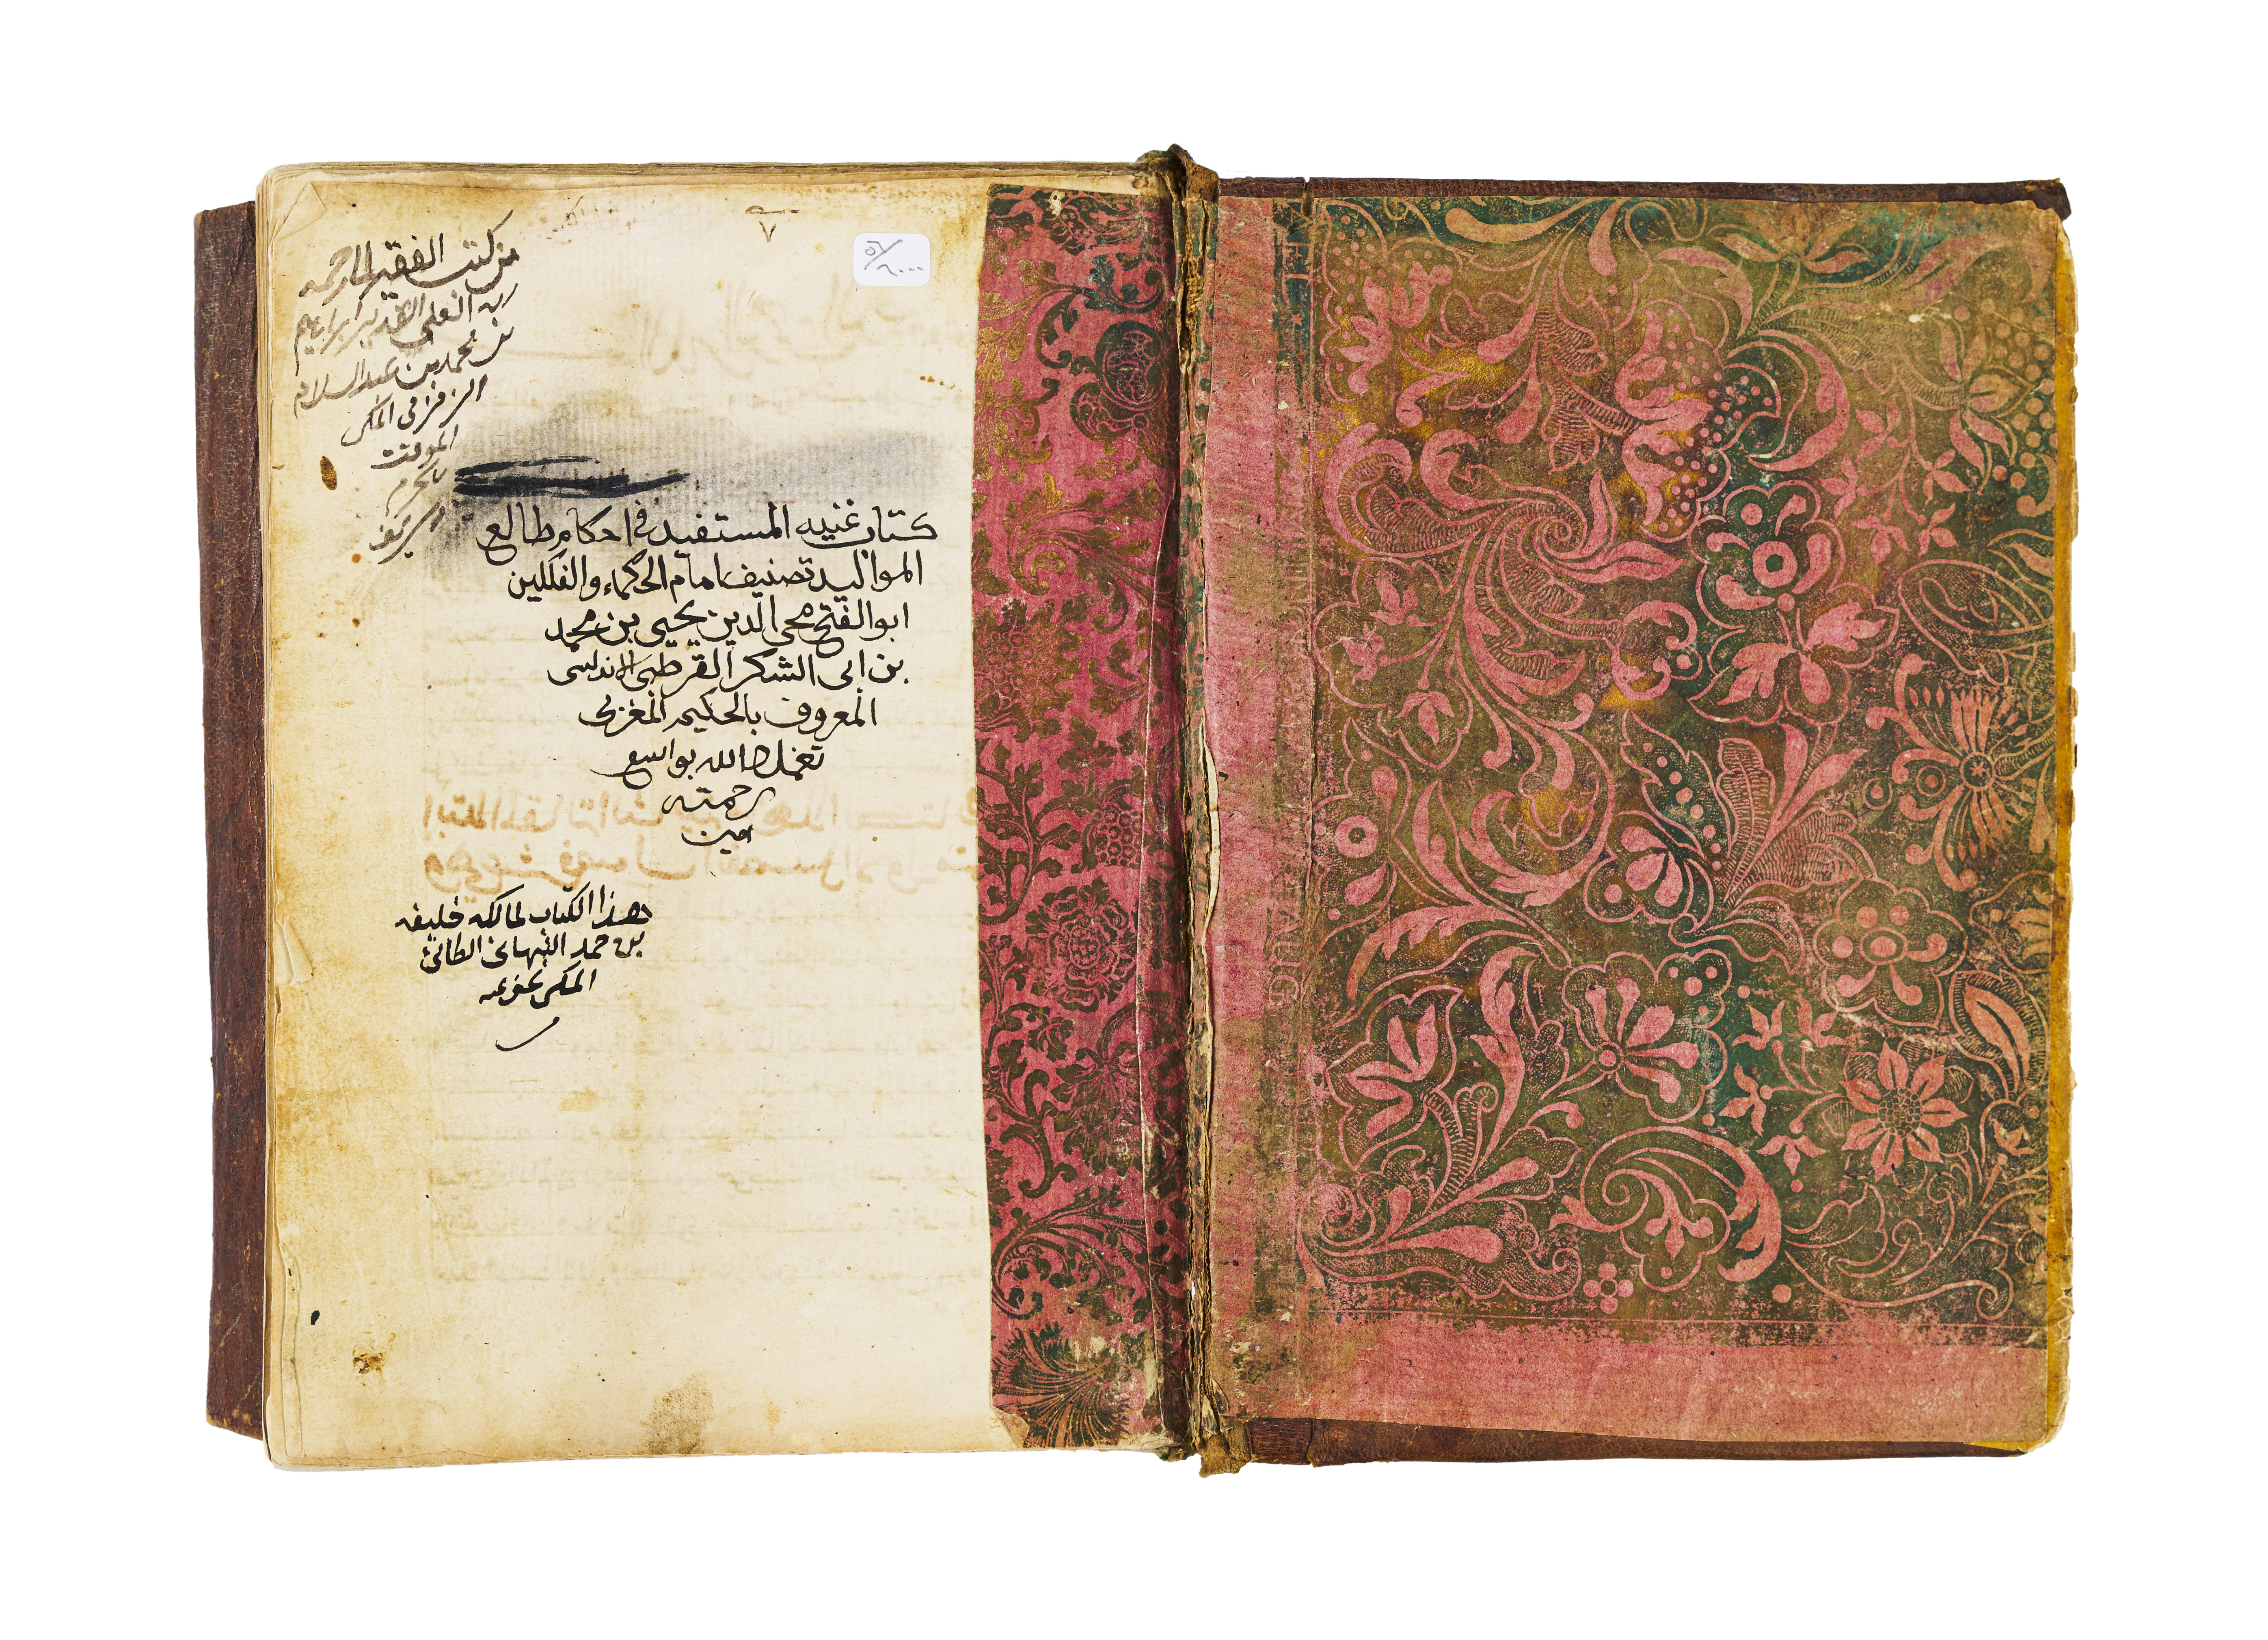 من كتب الفقير لما رحمة
ربه العلي القدير ابراهيم
بن محمد بن عبد السلام
الزمزمي المكي
الموقت
بالحرم
الشريف
كتاب غنيه المستفيد في احكام طالع
المواليد تصنيف امام الحكماء والفلكلين
ابو الفتح محي الدين يحيى بن محمد
بن ابى الشكر القرطبي الاندلسى
المعروف بالحكيم المغربي
تغمده الله بواسع
رحمته
امين
هذا الكتاب لمالكه خليفه
بن حمد النبهاني الطائي
المكي عفي عنه